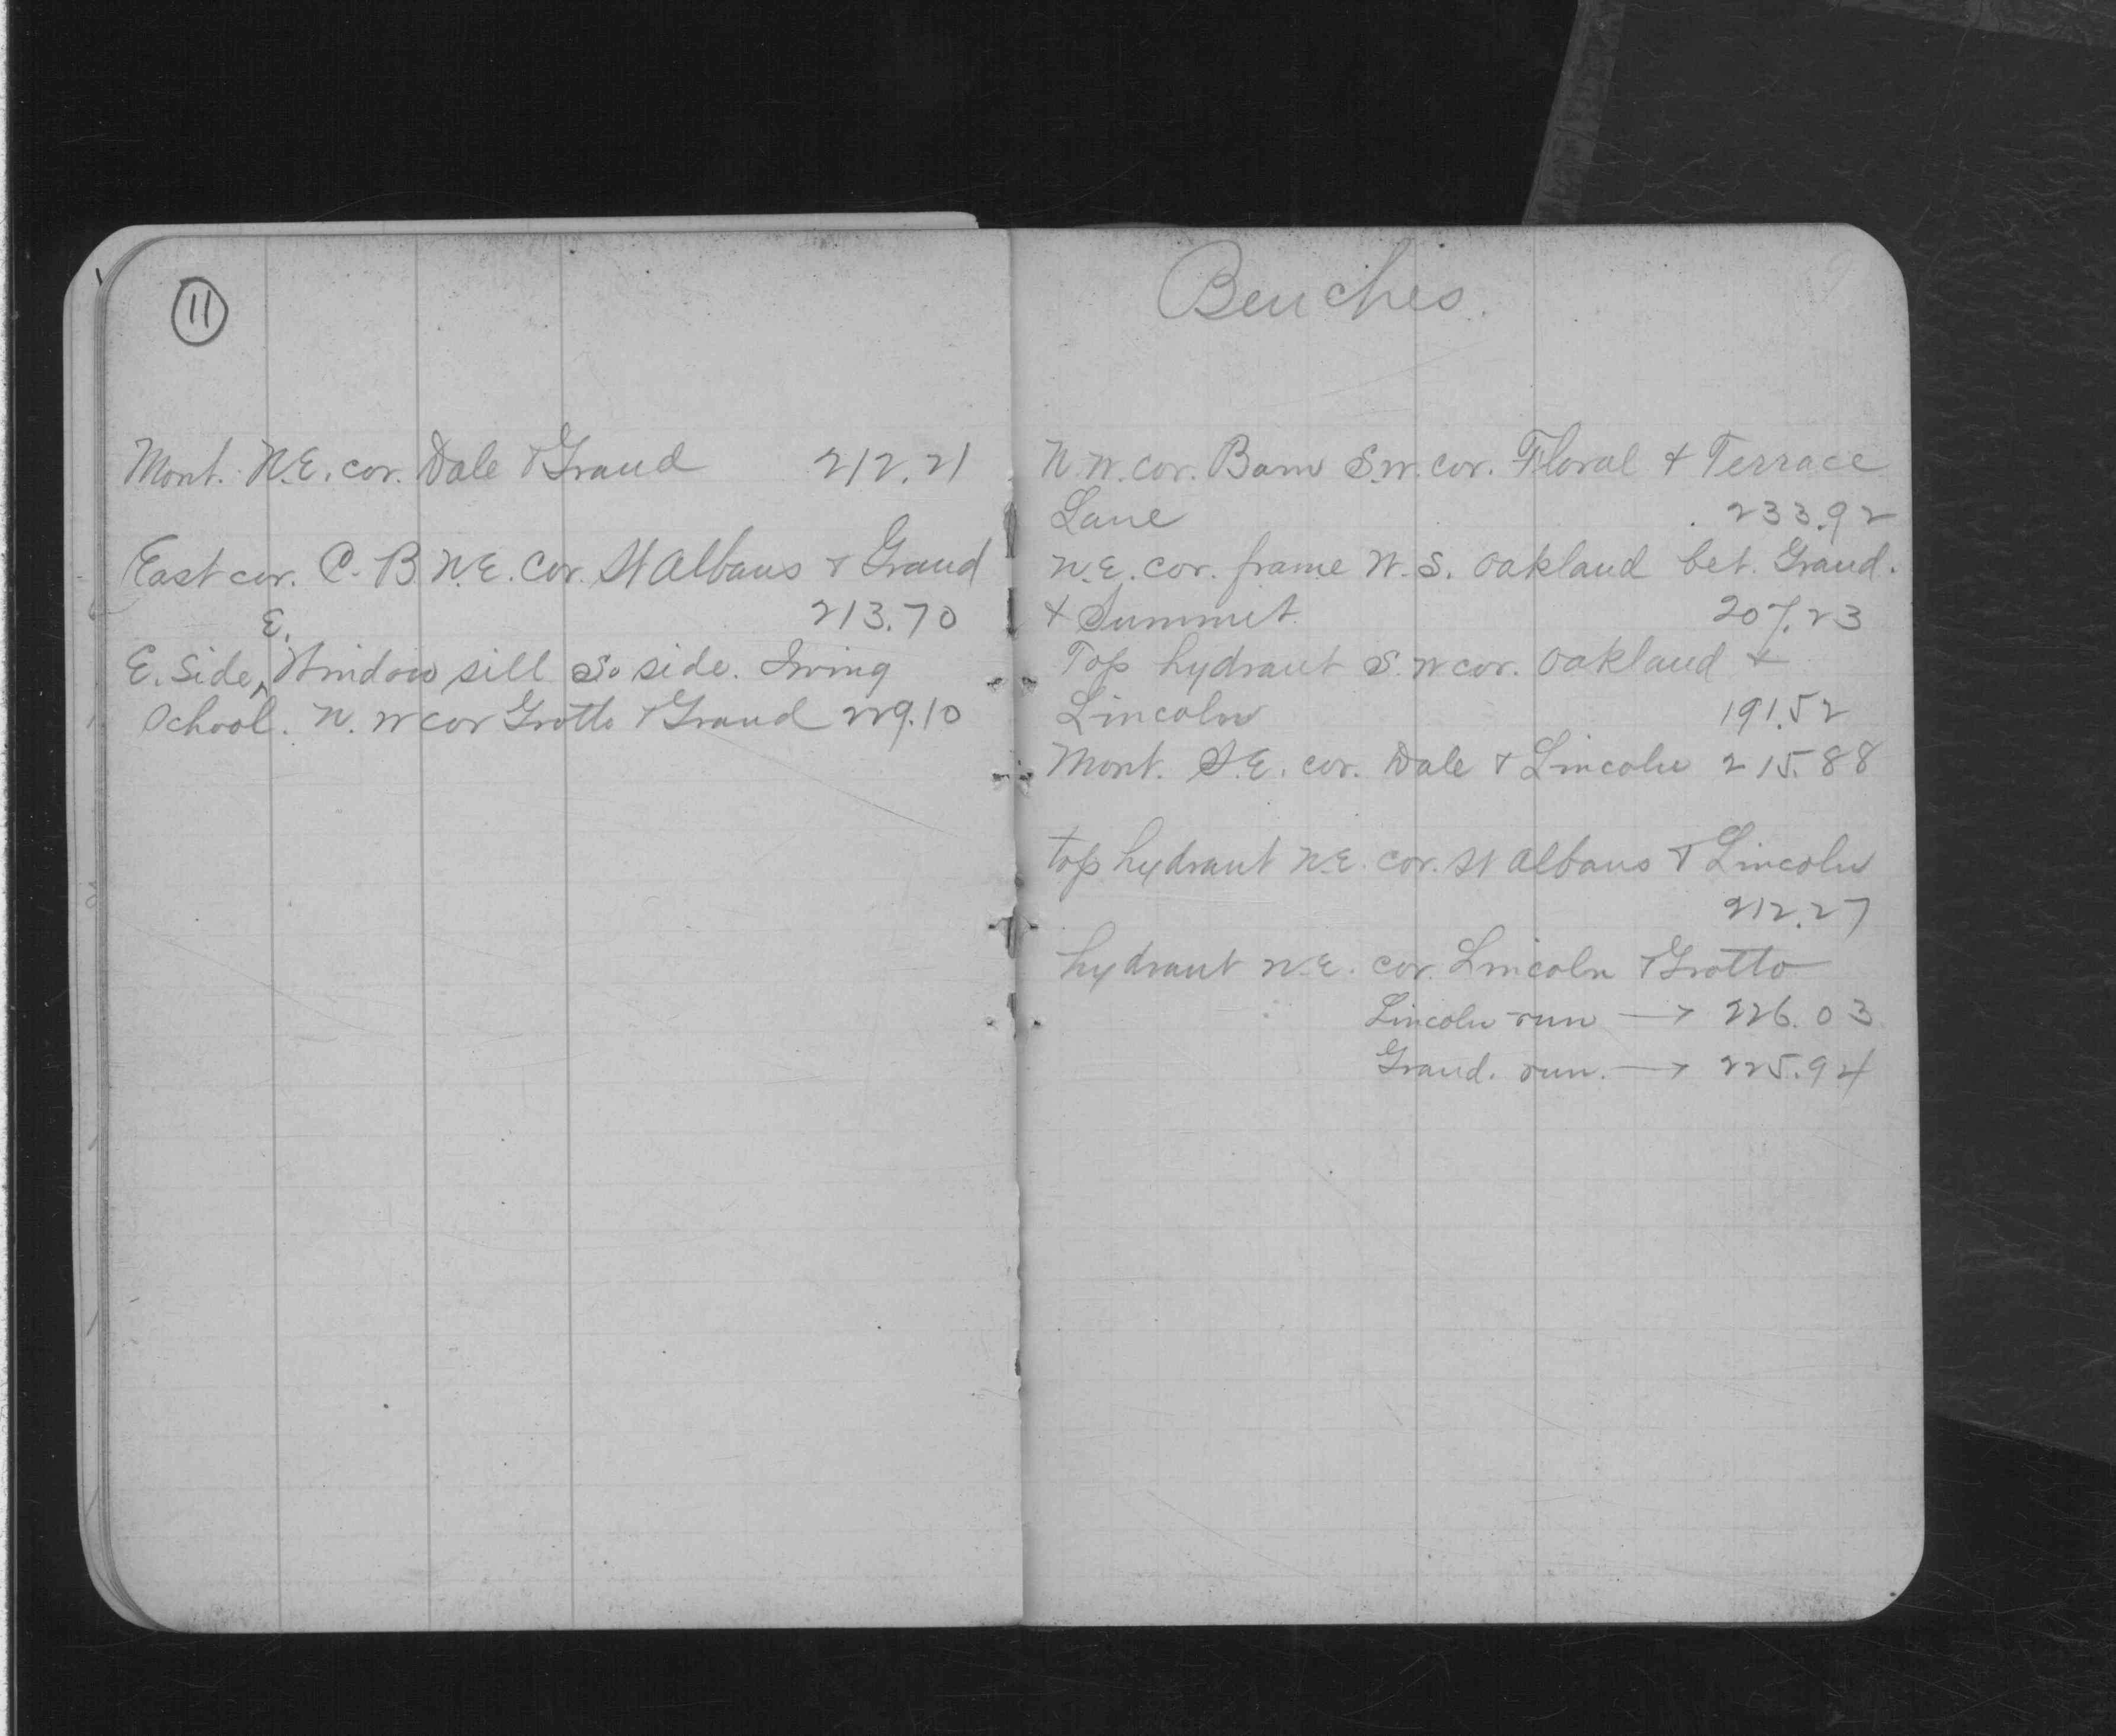 11
Mont. N.E. cor. Dale & Grand 212.21
East cor. C. B N.E. Cor. St Albans & Grand
213.70
E.
E. Side, Window sill So side. Irving
School. N. W cor Grotto & Grand 229.10
Benches.
9
N.W. cor. Barn S.W. cor. Floral & Terrace
Lane 233.92
N.E. cor. frame W. S. Oakland bet. Grand.
& Summit. 207.23
Top hydrant S. W cor. Oakland &
Lincoln 191.52
Mont. S.E. cor. Dale & Lincoln 215.88
top hydrant N.E. cor. St Albans & Lincoln
212.27
hydrant N.E. cor. Lincoln & Grotto
Lincoln run → 226.03
Grand. run. → 225.94